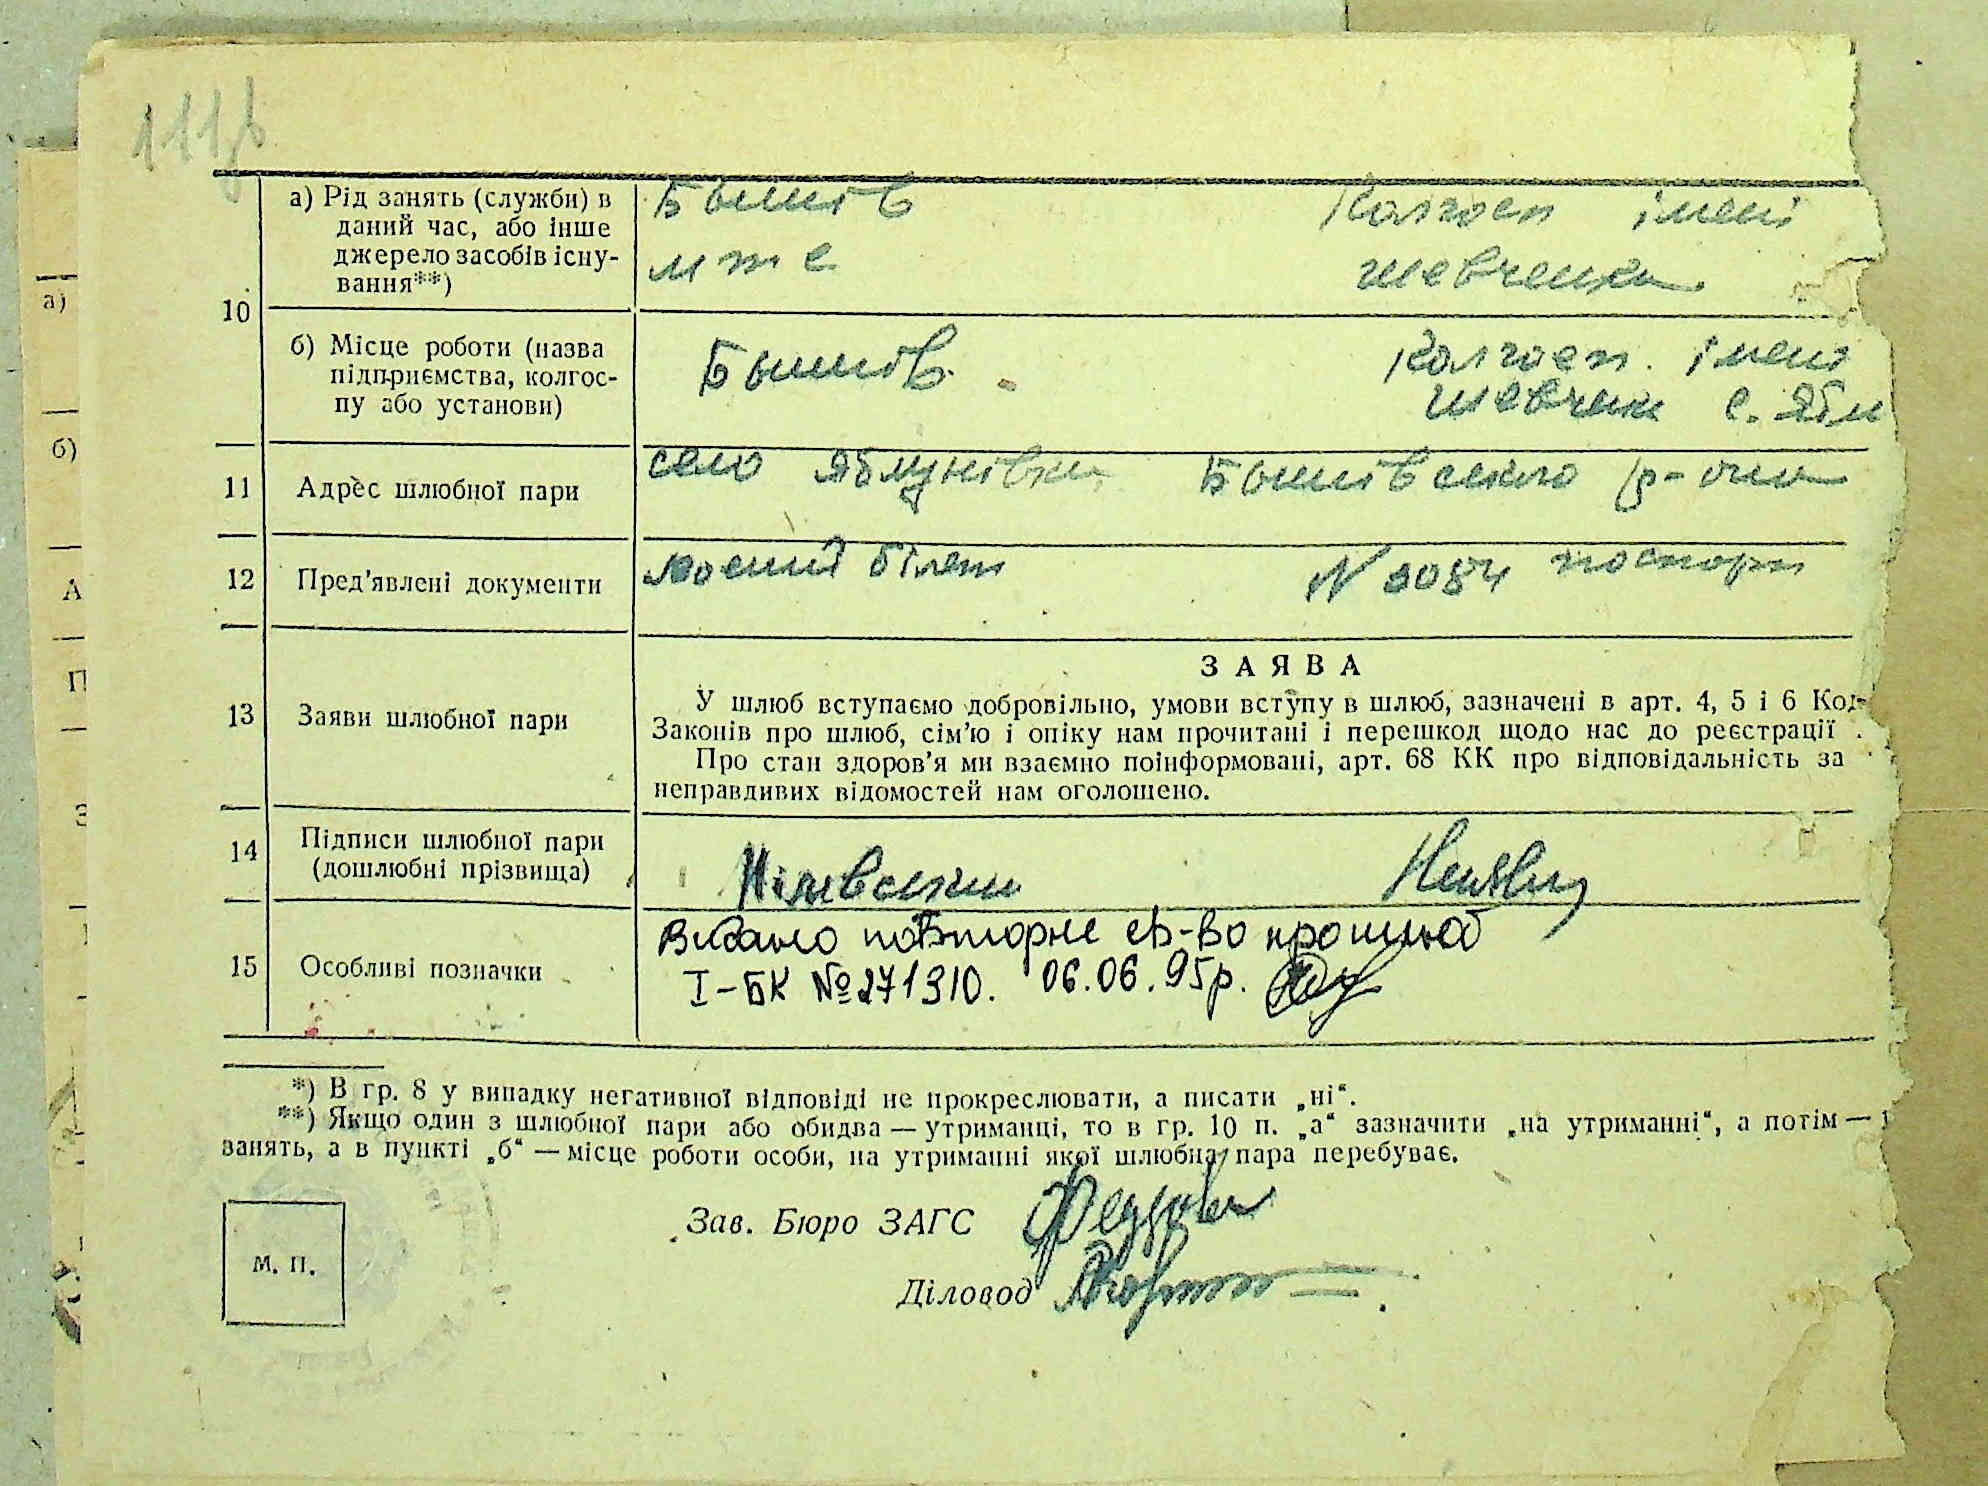 а) Рід занять (служби) в
даний час, або інше
джерело засобів існу-
вання**)
Бишів
мтс
Колгосп імені
шевченка
10
б) Місце роботи (назва
підприємства, колгос-
пу або установи)
Бишів
Колгосп. імені
шевченк с. Ябл
11 Адрес шлюбної пари
село Яблунівка Бишівського р-ону
12 Пред'явлені документи
воєний білет N 3084 паспорт
13 Заяви шлюбної пари
ЗАЯВА
У шлюб вступаємо добровільно, умови вступу в шлюб, зазначені в арт. 4, 5 і 6 Код-
Законів про шлюб, сім'ю і опіку нам прочитані і перешкод щодо нас до реєстрації
Про стан здоров'я ми взаємно поінформовані, арт. 68 КК про відповідальність за
неправдивих відомостей нам оголошено.
14 Підписи шлюбної пари
(дошлюбні прізвища)
15 Особливі позначки
Видано повторне св-во про шлюб
I-БК №271310. 06.06.95р.
*) В гр. 8 у випадку негативної відповіді не прокреслювати, а писати „ні“.
**) Якщо один з шлюбної пари або обидва — утриманці, то в гр. 10 п. „а“ зазначити „на утриманні“, а потім —
занять, а в пункті „б“ — місце роботи особи, на утриманні якої шлюбна пара перебуває.
Зав. Бюро ЗАГС
М. П.
Діловод
а)
б)
А
П
З